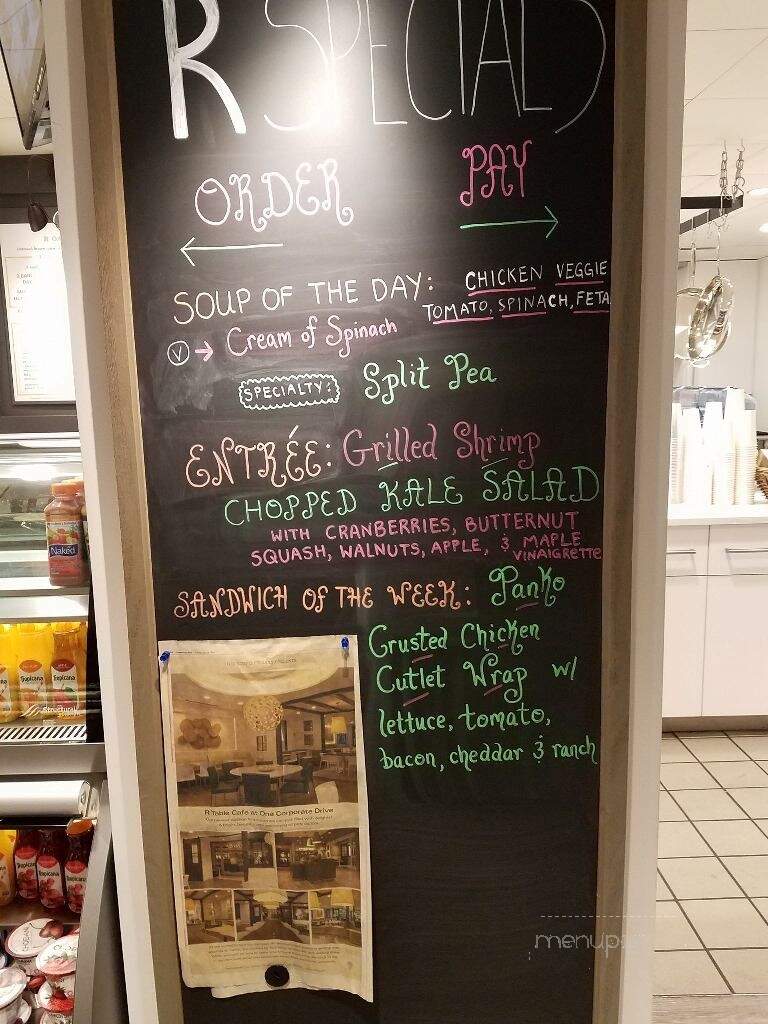 R SPECIALS
ORDER PAY
SOUP OF THE DAY: CHICKEN VEGGIE
TOMATO, SPINACH, FETA
V → Cream of Spinach
SPECIALTY: Split Pea
ENTRÉE: Grilled Shrimp
CHOPPED KALE SALAD
WITH CRANBERRIES, BUTTERNUT
SQUASH, WALNUTS, APPLE, & MAPLE
VINAIGRETTE
SANDWICH OF THE WEEK: Panko
Crusted Chicken
Cutlet Wrap w/
lettuce, tomato,
bacon, cheddar & ranch
R Table Cafe at One Corporate Drive
Naked
Tropicana
Tropicana
Tropicana
Tropicana